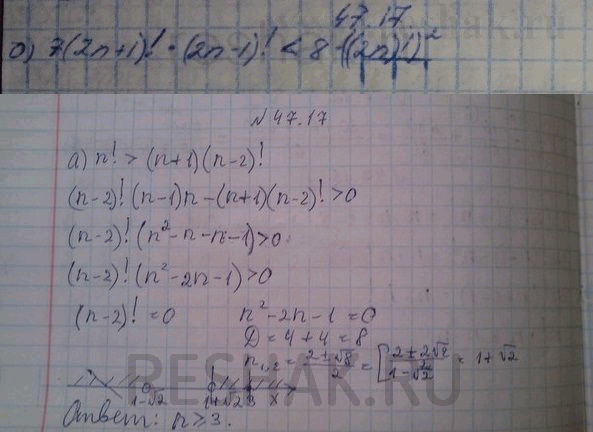 47.17
б) 7(2n+1)! · (2n-1)! < 8 · ((2n)!)²
N 47.17
а) n! > (n+1)(n-2)!
(n-2)! (n-1)n - (n+1)(n-2)! > 0
(n-2)! (n² - n - n - 1) > 0
(n-2)! (n² - 2n - 1) > 0
(n-2)! = 0 n² - 2n - 1 = 0
D = 4 + 4 = 8
n₁,₂ = (2 ± √8)/2 = [ (2 ± 2√2)/2 = 1 + √2
1 - √2
1-√2 1+√2 3 x
Ответ: n ≥ 3.
RESHAK.RU